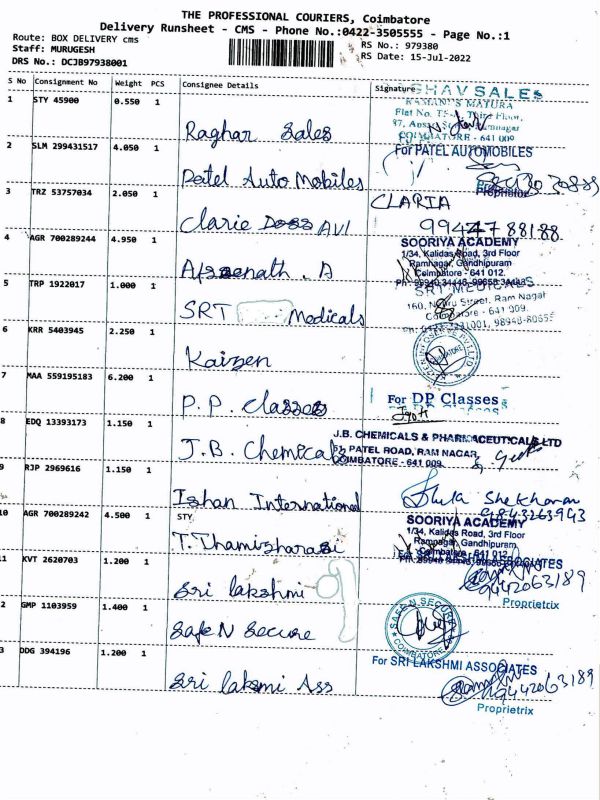 THE PROFESSIONAL COURIERS, Coimbatore
Delivery Runsheet - CMS - Phone No.:0422-3505555 - Page No.:1
Route: BOX DELIVERY cms
RS No.: 979380
Staff: MURUGESH
RS Date: 15-Jul-2022
DRS No.: DCJB97938001
S No Consignment No Weight PCS Consignee Details Signature
1 STY 45900 0.550 1
Raghar Sales
SALES
Third Floor,
COIMBATORE - 641 00
2 SLM 299431517 4.050 1
Patel Auto Mobiles
For PATEL AUTOMOBILES
Proprietor
3 TRZ 53757034 2.050 1
Clarie AVI
CLARIA
99447 88188
4 AGR 700289244 4.950 1
SOORIYA ACADEMY
1/34, Kalidas Road, 3rd Floor
Ramnagar, Gandhipuram
Coimbatore - 641 012.
5 TRP 1922017 1.000 1
SRT Medicals
SRT MEDICALS
160, Nehru Street, Ram Nagar
Coimbatore - 641 009.
6 KRR 5403945 2.250 1
Kaizen
7 MAA 559195183 6.200 1
P.P. Classes
For DP Classes
Jyoti
8 EDQ 13393173 1.150 1
J.B. Chemicals
J.B. CHEMICALS & PHARMACEUTICALS LTD
PATEL ROAD, RAM NAGAR,
COIMBATORE - 641 009
9 RJP 2969616 1.150 1
Ishan International
Shekharan
9843263943
10 AGR 700289242 4.500 1
STY
T. Thamizharasi
SOORIYA ACADEMY
1/34, Kalidas Road, 3rd Floor
Ramnagar, Gandhipuram
Coimbatore - 641 012
11 KVT 2620703 1.200 1
Sri lakshmi
For SRI LAKSHMI ASSOCIATES
9442063189
Proprietrix
2 GMP 1103959 1.400 1
Safe N Secure
SAFE N SECURE
COIMBATORE
3 DDG 394196 1.200 1
Sri laksmi Ass
For SRI LAKSHMI ASSOCIATES
9442063189
Proprietrix